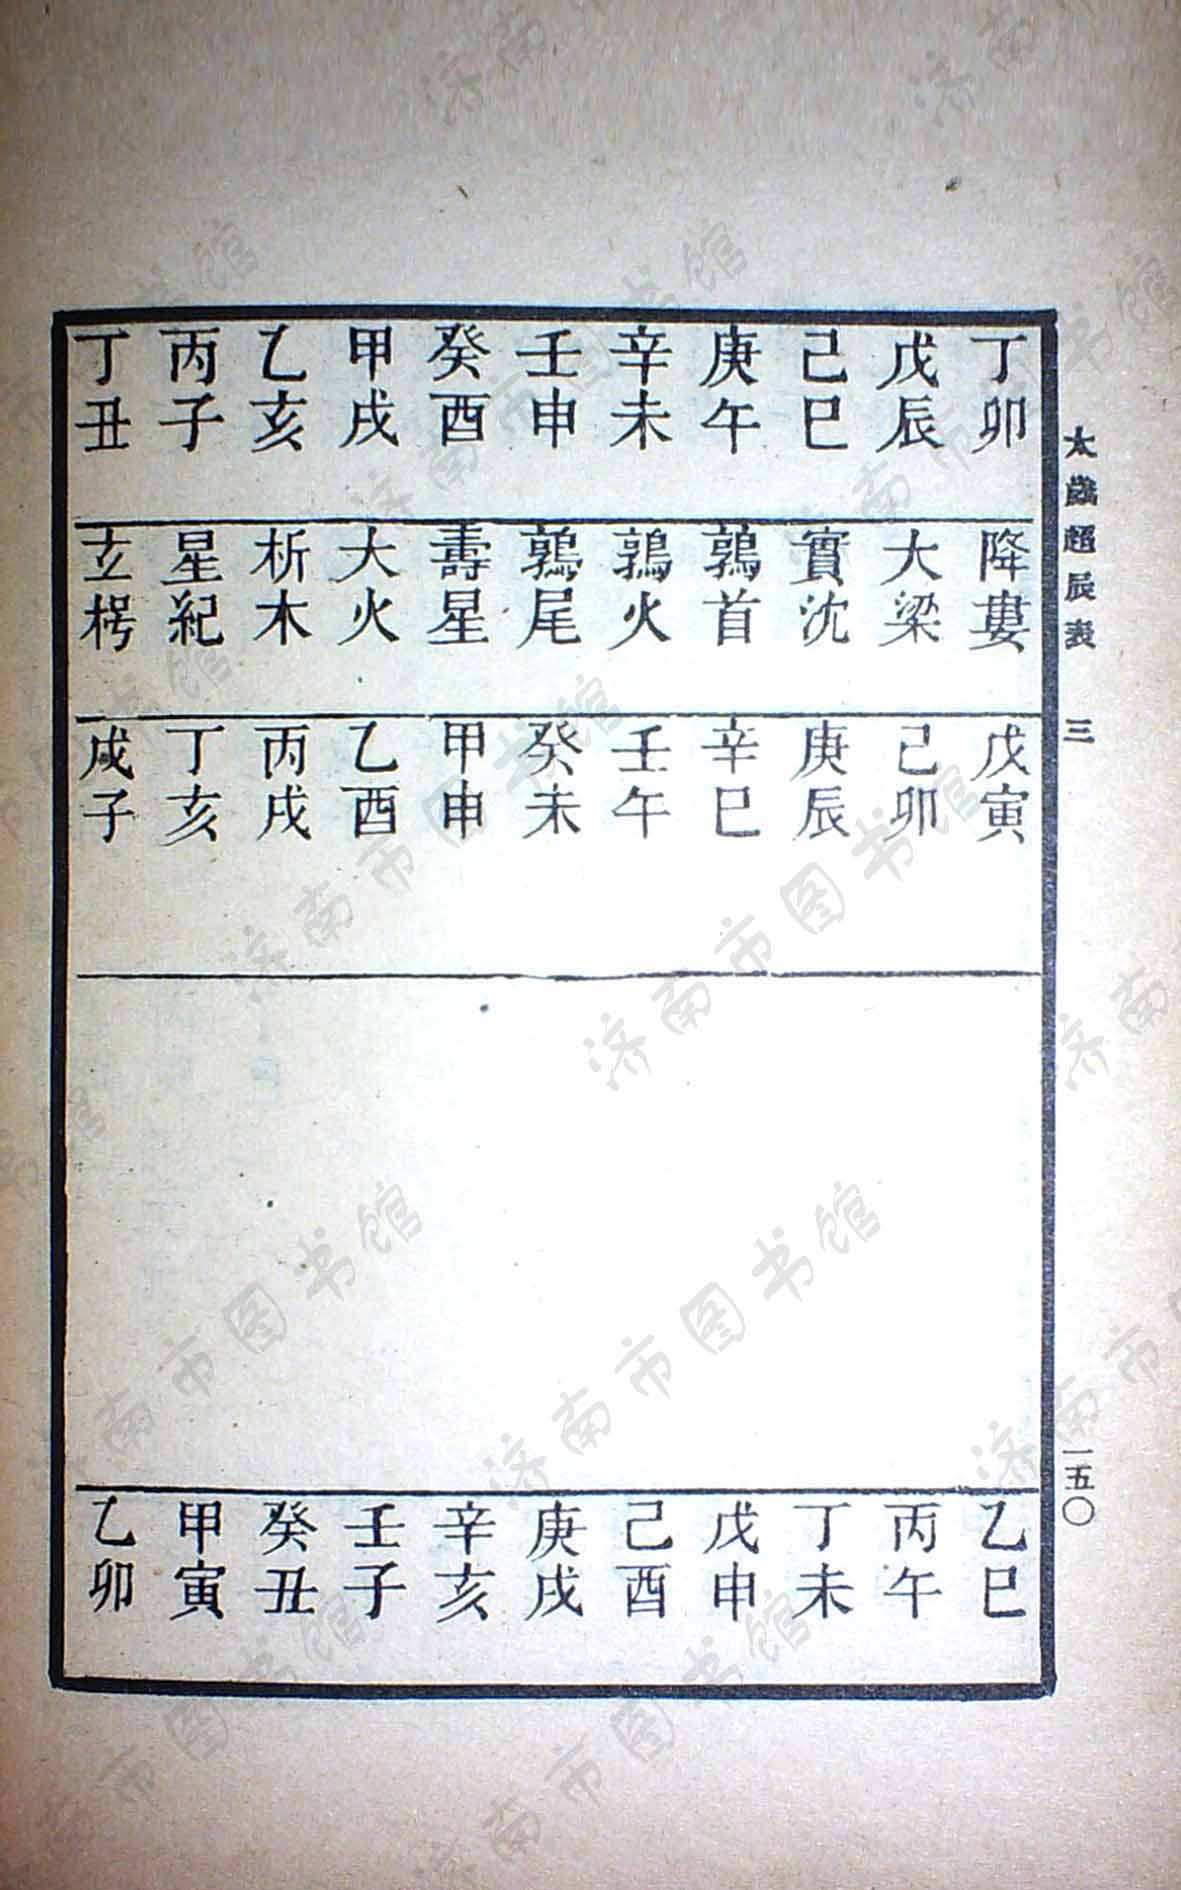 太歲超辰表 三 一五〇
丁卯 降婁 戊寅 乙巳
戊辰 大梁 己卯 丙午
己巳 實沈 庚辰 丁未
庚午 鶉首 辛巳 戊申
辛未 鶉火 壬午 己酉
壬申 鶉尾 癸未 庚戌
癸酉 壽星 甲申 辛亥
甲戌 大火 乙酉 壬子
乙亥 析木 丙戌 癸丑
丙子 星紀 丁亥 甲寅
丁丑 玄枵 戊子 乙卯
济南市图书馆